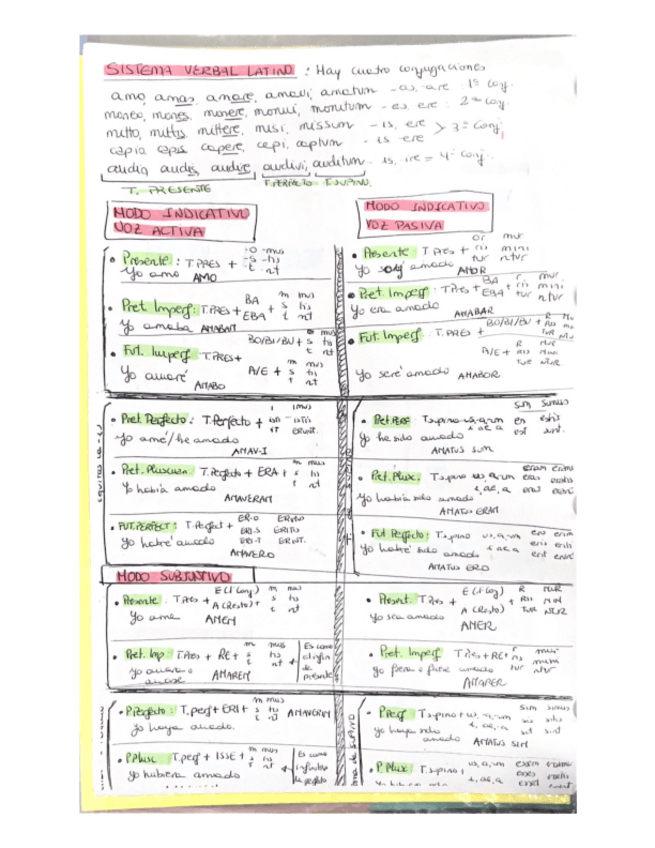 SISTEMA VERBAL LATINO : Hay cuatro conjugaciones
amo, amas, amare, amavi, amatum - as, are : 1ª conj.
moneo, mones, monere, monui, monitum - es, ere : 2ª conj.
mitto, mittis, mittere, misi, missum - is, ere > 3ª conj.
capio capis capere, cepi, captum - is ere
audio audis, audire, audivi, auditum - is, ire = 4ª conj.
T. PRESENTE T. PERFECTO T. SUPINO.
MODO INDICATIVO
VOZ ACTIVA
• Presente : T. PRES + -o -mus
-s -tis
-t -nt
Yo amo AMO
• Pret. Imperf: T. PRES + BA
EBA + m mus
s tis
t nt
Yo amaba AMABAM
• Fut. Imperf : T. PRES + BO/BI/BU + o mus
s tis
t nt
A/E + m mus
s tis
t nt
Yo amaré AMABO
• Pret. Perfecto : T. Perfecto +
yo amé/he amado
AMAV-I
• Pret. Pluscuam. T. Perfecto + ERA + m mus
s tis
t nt
Yo había amado
AMAVERAM
• FUT. PERFECT : T. Perfect + ER-O
ERI-S ERITIS
ERI-T ERINT.
Yo habré amado
AMAVERO
MODO INDICATIVO
VOZ PASIVA
• Presente T. Pres + or mur
ris mini
tur ntur
Yo soy amado AMOR
• Pret. Imperf : T. Pres + BA
EBA + r mur
ris mini
tur ntur
Yo era amado
AMABAR
Fut. Imperf : T. PRES + BO/BI/BU +
A/E + R MUR
RIS MINI
TUR NTUR
Yo seré amado AMABOR
• Pret. Perf : T. supino us, a, um
i, ae, a
sum sumus
es estis
est sunt.
Yo he sido amado
AMATUS SUM
• Pret. Plux. : T. supino us, a, um
i, ae, a
Yo había sido amado
AMATUS ERAM
• Fut Perfecto : T. supino us, a, um
i, ae, a
Yo habré sido amado
AMATUS ERO
MODO SUBJUNTIVO
• Presente : T. Pres + E (1ª Conj)
A (Resto) + m mus
s tis
t nt
Yo ame AMEM
• Pret. Imp : T. Pres + RE + m mus
s tis
t nt
Es como
el infin
de
presente
yo amara o
amase AMAREM
• P. Perfecto : T. perf + ERI + m mus
s tis
t nt
AMAVERIM
yo haya amado.
• P. Plusc T. perf + ISSE + m mus
s tis
t nt
Es como
infinitivo
de perfecto
yo hubiera amado
• Present. T. Pres + E (1ª Conj)
A (Resto) + R MUR
RIS MINI
TUR NTUR
Yo sea amado
AMER
• Pret. Imperf T. Pres + RE +
yo fuera o fuese amado
AMARER
• P. Perf T. supino + us, a, um
i, ae, a
sim simus
sis sitis
sit sint
yo haya sido
amado AMATUS SIM
• P. Plux : T. supino + us, a, um
i, ae, a